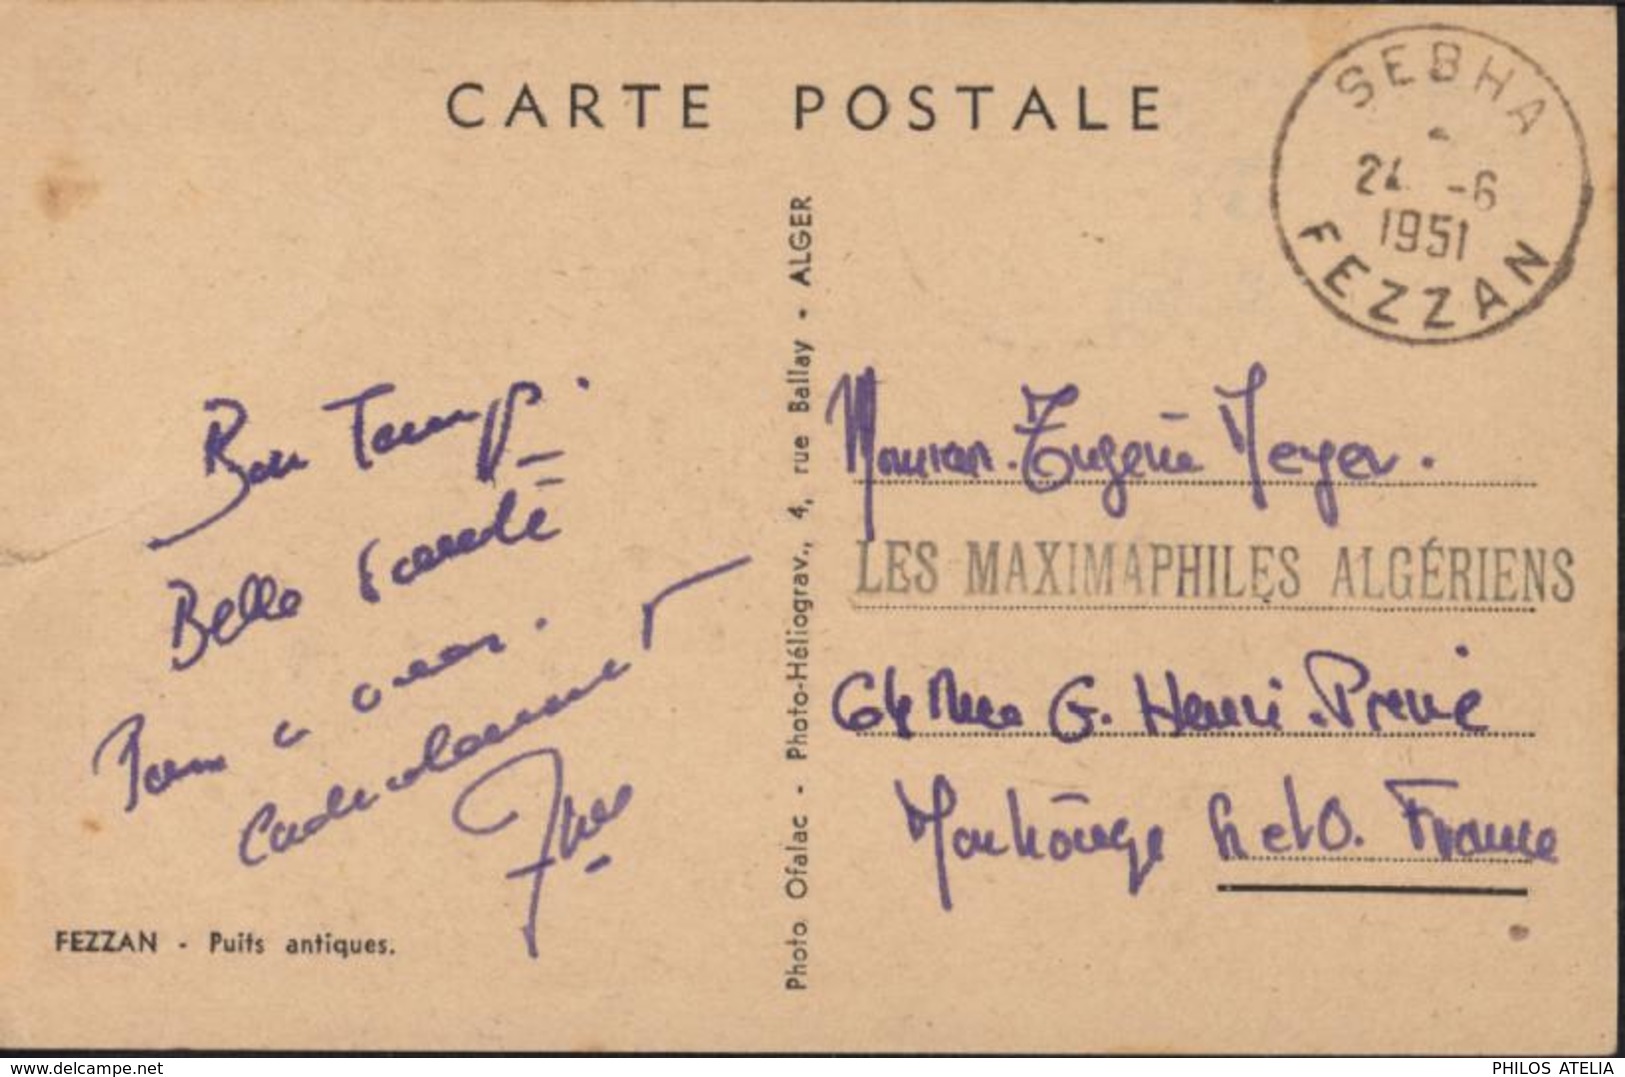 CARTE POSTALE
SEBHA
24 -6
1951
FEZZAN
Bon Temps.
Belle
à
Cordialement
Yves
FEZZAN - Puits antiques.
Photo Ofalac - Photo-Héliograv., 4, rue Ballay - ALGER
Monsieur Eugène Meyer.
LES MAXIMAPHILES ALGÉRIENS
64 Rue G. Henri
S et O. France
delcampe.net
PHILOS ATELIA